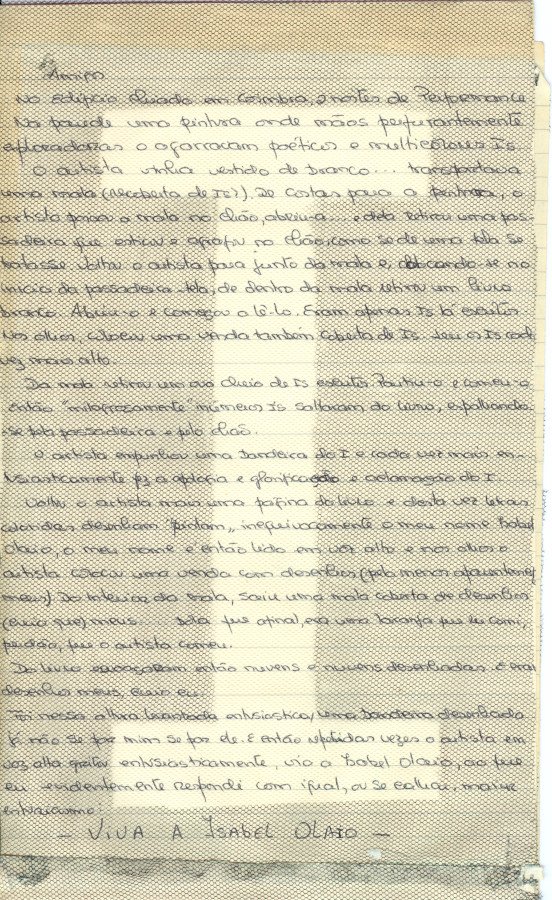 Amigos
No Edifício Chiado em Coimbra, 2 noites de Performance
Na parede uma pintura onde mãos perfurantemente
exploradoras o agarravam poéticos e multicolores Is.
O artista vinha vestido de branco... transportava
uma mala (recoberta de Is?). De costas para a pintura, o
artista pousou a mala no chão, abriu-a... e dela retirou uma pas-
sadeira que esticou e agrafou no chão, como se de uma tela se
tratasse. Voltou o artista para junto da mala e, colocando-se no
início da passadeira-tela, de dentro da mala retirou um livro
branco. Abriu-o e começou a lê-lo. Eram apenas Is lá escritos.
Nos olhos, colocou uma venda também coberta de Is. Leu os Is cada
vez mais alto.
Da mala retirou um ovo cheio de Is escritos. Partiu-o e comeu-o
Então "milagrosamente" inúmeros Is saltaram do livro, espalhando-
-se pela passadeira e pelo chão.
O artista empunhou uma bandeira do I e cada vez mais en-
tusiasticamente fez a apologia e glorificação e aclamação do I.
Voltou o artista mais uma página do livro e desta vez letras
coloridas desenham "pintam" inequivocamente o meu nome Isabel
Olaio, o meu nome é então lido em voz alta e nos olhos o
artista colocou uma venda com desenhos (pelo menos aparentemente
meus). Do interior da mala, saiu uma bola coberta de desenhos
(creio que) meus... bola que afinal, era uma laranja que eu comi,
perdão, que o artista comeu.
Do livro esvoaçaram então nuvens e nuvens desenhadas. E eram
desenhos meus, creio eu.
Foi nessa altura levantada entusiastica/ uma bandeira desenhada
não se por mim se por ele. E então repetidas vezes o artista em
voz alta gritou entusiasticamente, viva a Isabel Olaio, ao que
eu evidentemente respondi com igual, ou se calhar, maior
entusiasmo:
— VIVA A ISABEL OLAIO —